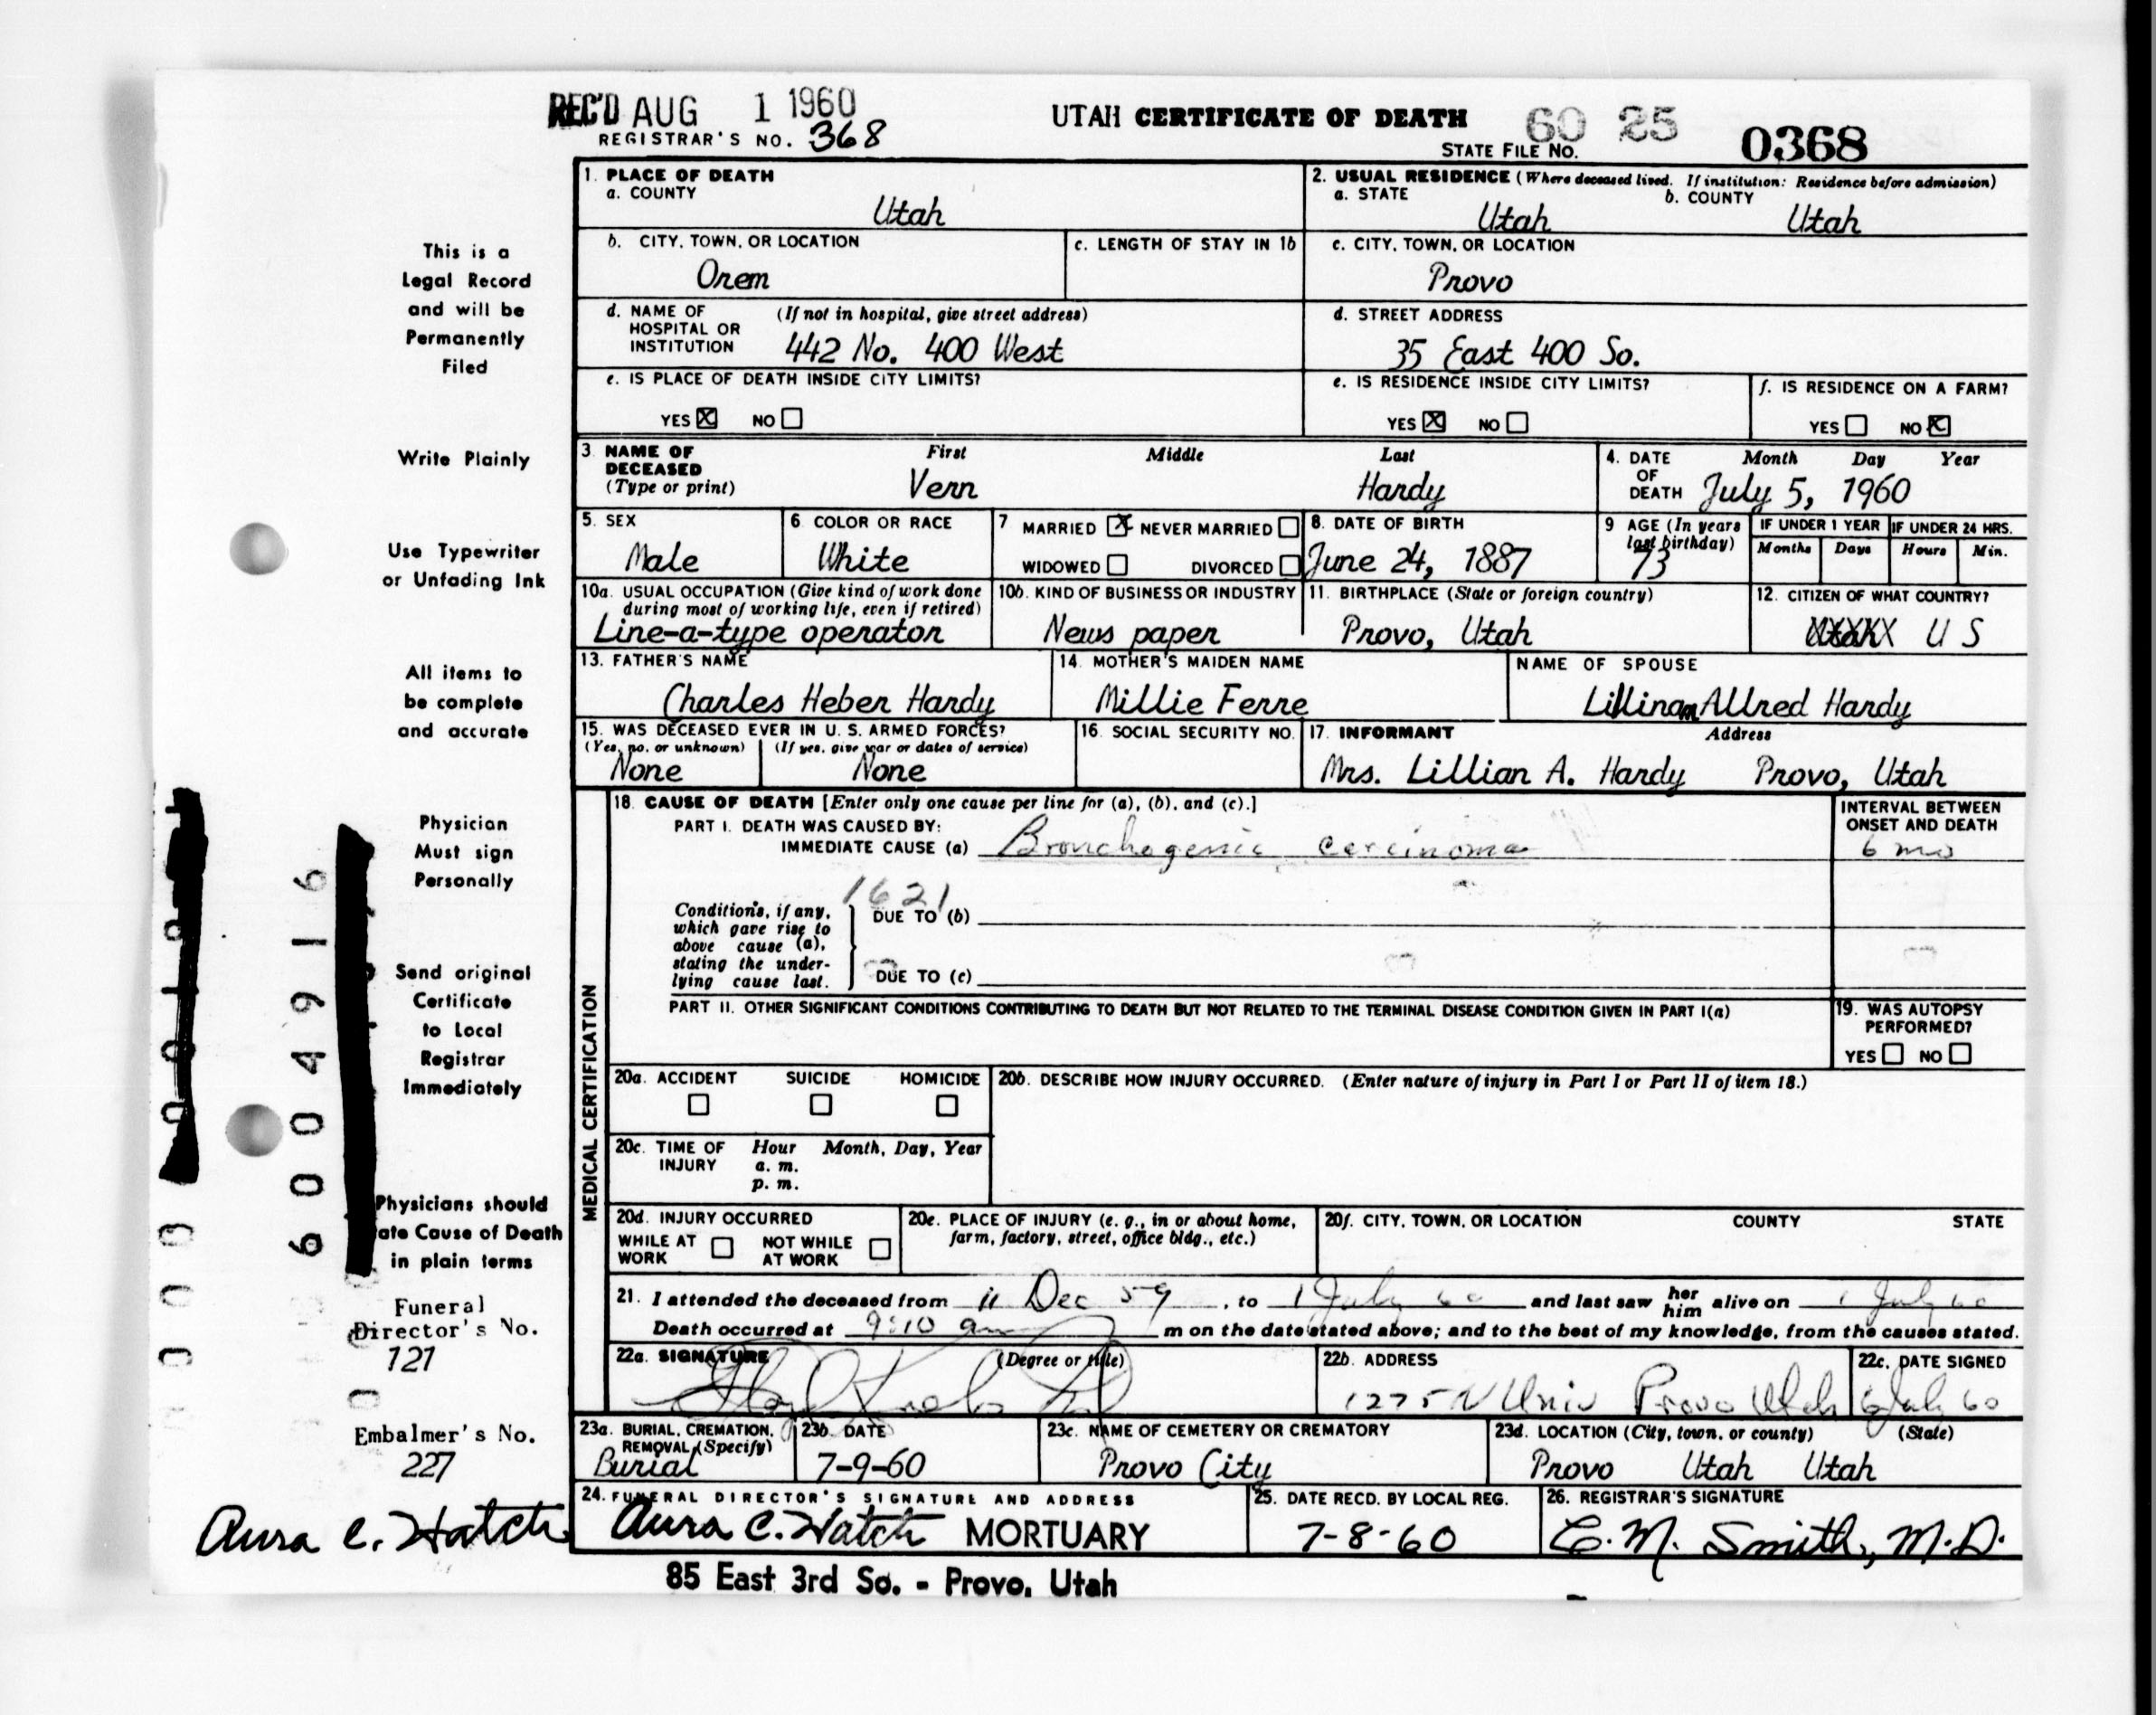 REC'D AUG 1 1960
REGISTRAR'S NO. 368
UTAH CERTIFICATE OF DEATH
60 25
STATE FILE NO. 0368
1. PLACE OF DEATH
a. COUNTY
Utah
2. USUAL RESIDENCE (Where deceased lived. If institution: Residence before admission)
a. STATE
Utah
b. COUNTY
Utah
b. CITY, TOWN, OR LOCATION
Orem
c. LENGTH OF STAY IN 1b
c. CITY, TOWN, OR LOCATION
Provo
d. NAME OF HOSPITAL OR INSTITUTION
(If not in hospital, give street address)
442 No. 400 West
d. STREET ADDRESS
35 East 400 So.
e. IS PLACE OF DEATH INSIDE CITY LIMITS?
YES X NO
e. IS RESIDENCE INSIDE CITY LIMITS?
YES X NO
f. IS RESIDENCE ON A FARM?
YES NO X
3. NAME OF DECEASED
(Type or print)
First Middle Last
Vern Hardy
4. DATE OF DEATH
Month Day Year
July 5, 1960
5. SEX
Male
6. COLOR OR RACE
White
7 MARRIED X NEVER MARRIED
WIDOWED DIVORCED
8. DATE OF BIRTH
June 24, 1887
9 AGE (In years last birthday)
73
IF UNDER 1 YEAR
Months Days
IF UNDER 24 HRS.
Hours Min.
10a. USUAL OCCUPATION (Give kind of work done during most of working life, even if retired)
Line-a-type operator
10b. KIND OF BUSINESS OR INDUSTRY
News paper
11. BIRTHPLACE (State or foreign country)
Provo, Utah
12. CITIZEN OF WHAT COUNTRY?
U S
13. FATHER'S NAME
Charles Heber Hardy
14. MOTHER'S MAIDEN NAME
Millie Ferre
NAME OF SPOUSE
Allred Hardy
15. WAS DECEASED EVER IN U. S. ARMED FORCES?
(Yes, no, or unknown) (If yes, give war or dates of service)
None None
16. SOCIAL SECURITY NO.
17. INFORMANT Address
Mrs. Lillian A. Hardy Provo, Utah
MEDICAL CERTIFICATION
18. CAUSE OF DEATH [Enter only one cause per line for (a), (b), and (c).]
PART I. DEATH WAS CAUSED BY:
IMMEDIATE CAUSE (a) Bronchogenic carcinoma
INTERVAL BETWEEN ONSET AND DEATH
6 mo
1621
Conditions, if any, which gave rise to above cause (a), stating the underlying cause last.
DUE TO (b)
DUE TO (c)
PART II. OTHER SIGNIFICANT CONDITIONS CONTRIBUTING TO DEATH BUT NOT RELATED TO THE TERMINAL DISEASE CONDITION GIVEN IN PART I(a)
19. WAS AUTOPSY PERFORMED?
YES NO
20a. ACCIDENT SUICIDE HOMICIDE
20b. DESCRIBE HOW INJURY OCCURRED. (Enter nature of injury in Part I or Part II of item 18.)
20c. TIME OF INJURY
Hour Month, Day, Year
a. m.
p. m.
20d. INJURY OCCURRED
WHILE AT WORK NOT WHILE AT WORK
20e. PLACE OF INJURY (e. g., in or about home, farm, factory, street, office bldg., etc.)
20f. CITY, TOWN, OR LOCATION COUNTY STATE
21. I attended the deceased from 11 Dec 59, to 1 July 60 and last saw her him alive on 1 July 60
Death occurred at 9:10 am m on the date stated above; and to the best of my knowledge, from the causes stated.
22a. SIGNATURE (Degree or title)
22b. ADDRESS
1275 N Univ Provo Utah
22c. DATE SIGNED
6 July 60
23a. BURIAL, CREMATION, REMOVAL (Specify)
Burial
23b. DATE
7-9-60
23c. NAME OF CEMETERY OR CREMATORY
Provo City
23d. LOCATION (City, town, or county) (State)
Provo Utah Utah
24. FUNERAL DIRECTOR'S SIGNATURE AND ADDRESS
Aura C. Hatch MORTUARY
85 East 3rd So. - Provo, Utah
25. DATE RECD. BY LOCAL REG.
7-8-60
26. REGISTRAR'S SIGNATURE
C. M. Smith, M.D.
This is a
Legal Record
and will be
Permanently
Filed
Write Plainly
Use Typewriter
or Unfading Ink
All items to
be complete
and accurate
Physician
Must sign
Personally
Send original
Certificate
to Local
Registrar
Immediately
Physicians should
ate Cause of Death
in plain terms
Funeral
Director's No.
121
Embalmer's No.
227
Aura C. Hatch
6004916